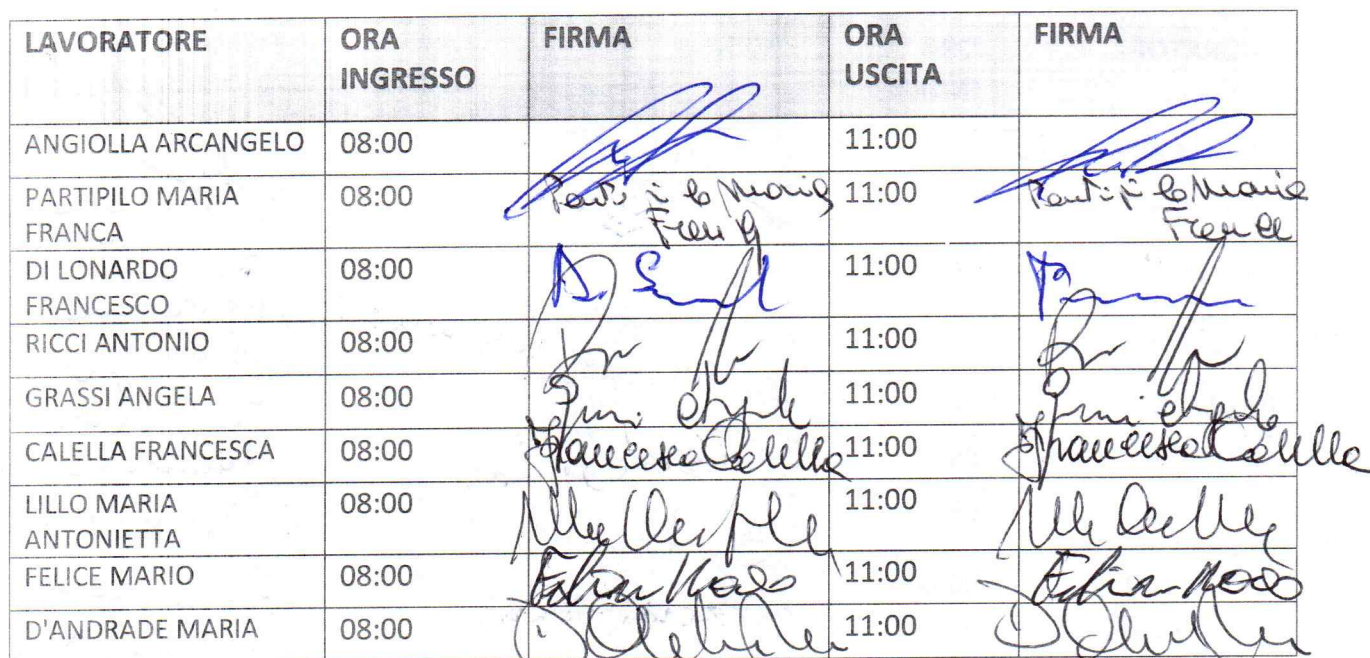 LAVORATORE ORA INGRESSO FIRMA ORA USCITA FIRMA
ANGIOLLA ARCANGELO 08:00 11:00
PARTIPILO MARIA FRANCA 08:00 Partipilo Maria Franca 11:00 Partipilo Maria Franca
DI LONARDO FRANCESCO 08:00 11:00
RICCI ANTONIO 08:00 11:00
GRASSI ANGELA 08:00 11:00
CALELLA FRANCESCA 08:00 Francesca Calella 11:00 Francesca Calella
LILLO MARIA ANTONIETTA 08:00 11:00
FELICE MARIO 08:00 11:00
D'ANDRADE MARIA 08:00 11:00